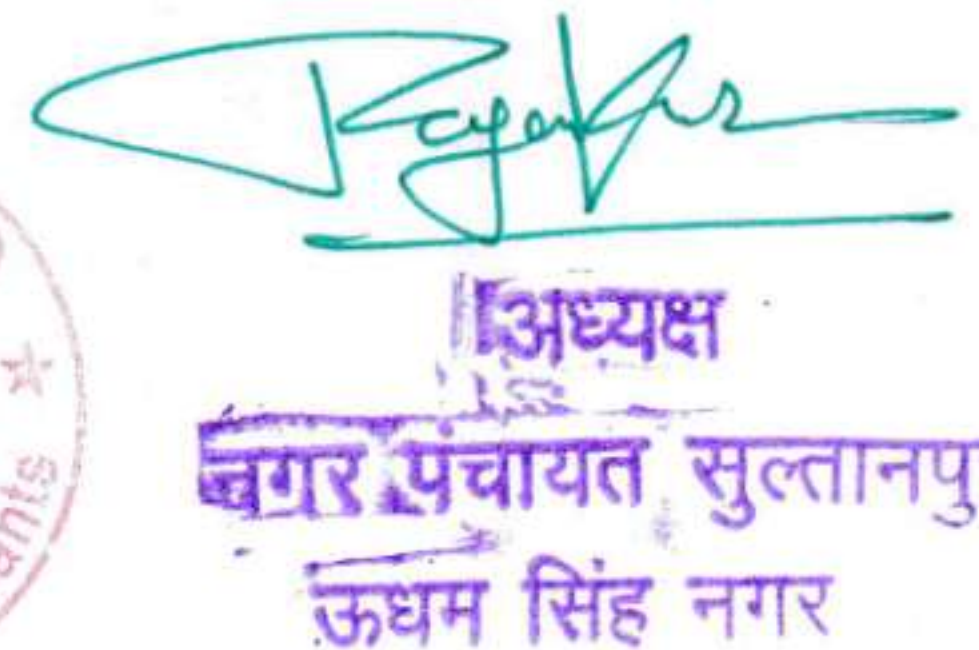 अध्यक्ष
नगर पंचायत सुल्तानपु
ऊधम सिंह नगर
ants